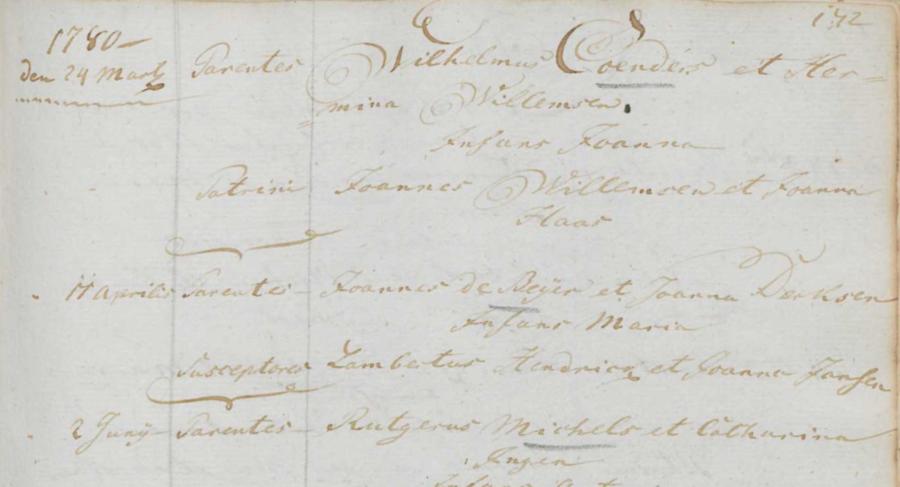 142
1780 -
den 24 Marty Parentes Wilhelmus Coenders et Her-
mina Willemsen.
Infans Joanna
Patrini Joannes Willemsen et Joanna
Haas
17 Aprilis Parentes - Joannes de Reijer et Joanna Derksen
Infans Maria
Susceptores Lambertus Hendricx et Joanna Jansen
2 Junÿ - Parentes - Rutgerus Michels et Catharina
Ingen
Infans